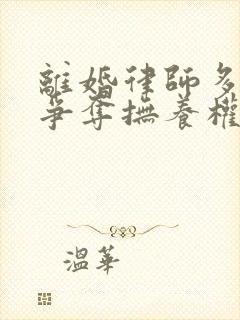 離婚律師多
爭奪撫養權
溫華